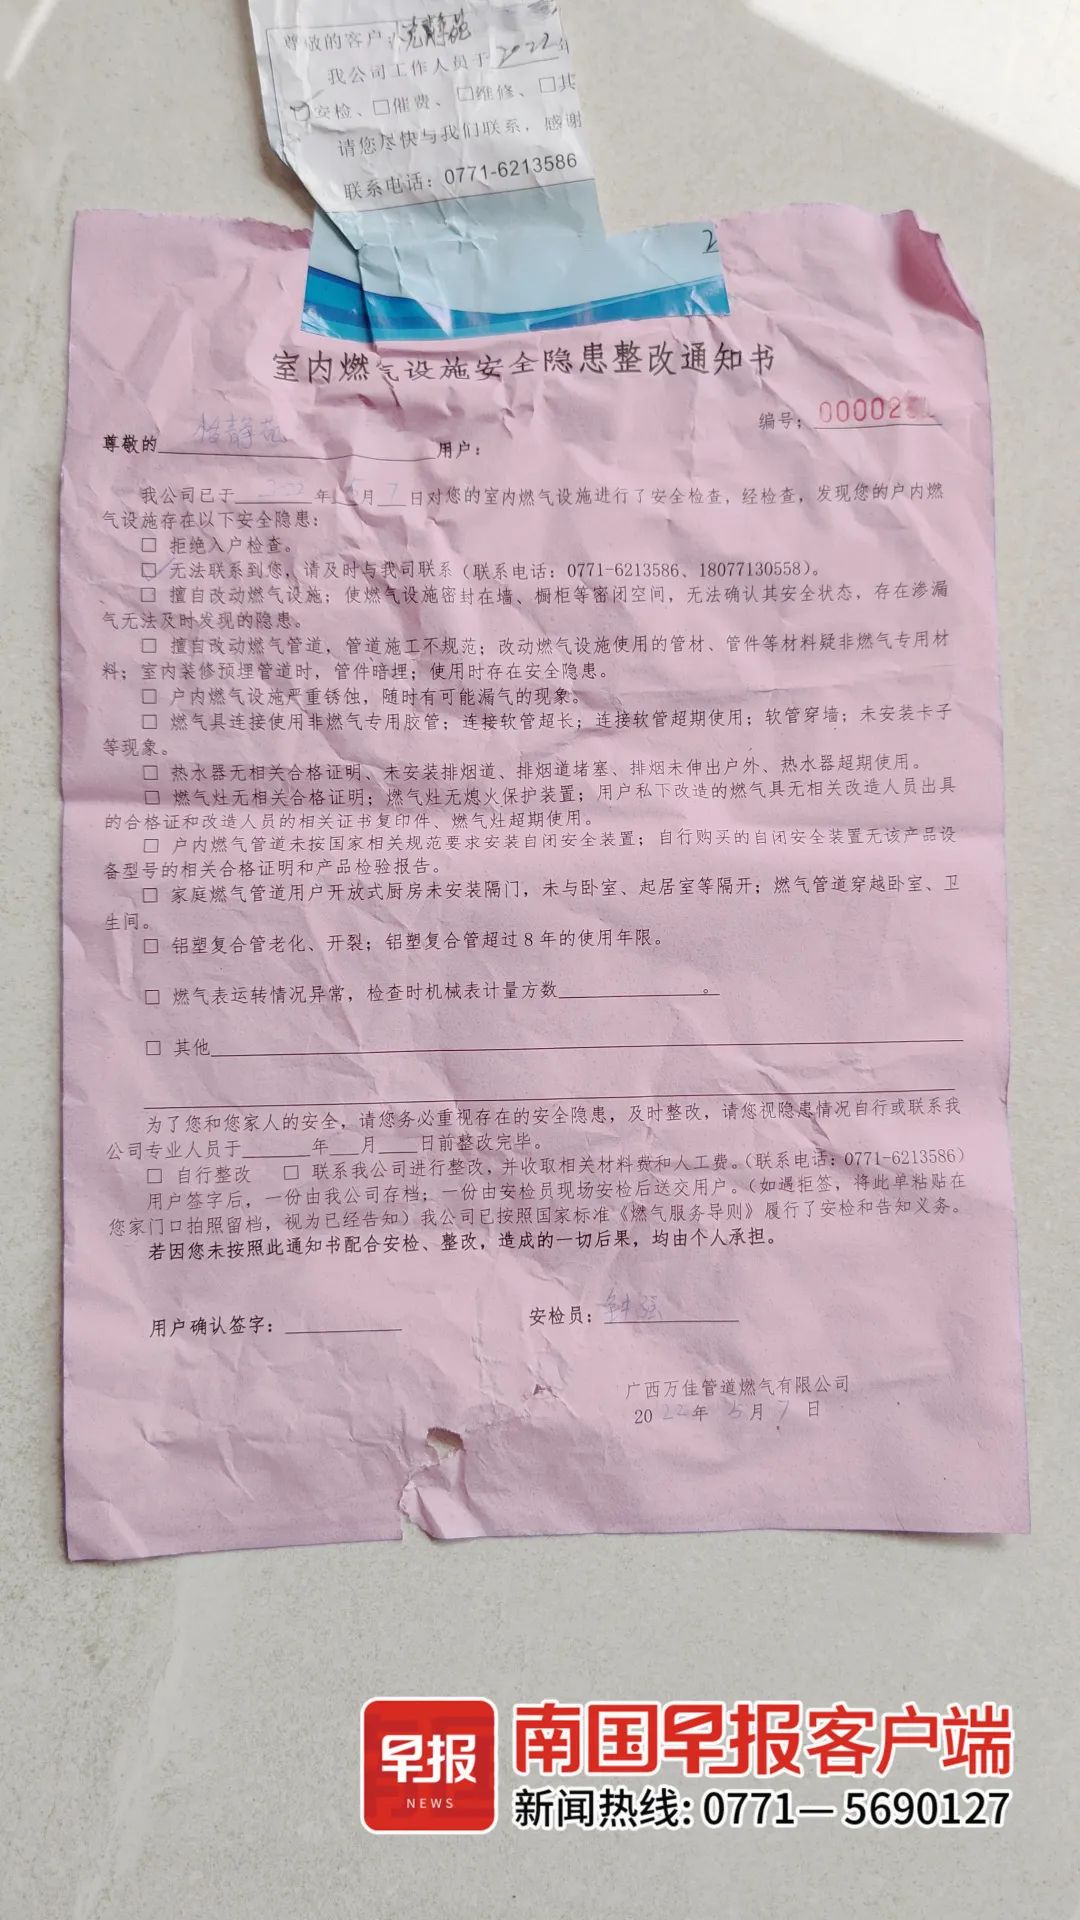 尊敬的客户：
我公司工作人员于2022年
☑安检、□催费、□维修、□其
请您尽快与我们联系，感谢
联系电话：0771-6213586
2
室内燃气设施安全隐患整改通知书
编号：00002
尊敬的 怡静苑 用户：
我公司已于 年5月7日对您的室内燃气设施进行了安全检查，经检查，发现您的户内燃
气设施存在以下安全隐患：
□ 拒绝入户检查。
☑ 无法联系到您，请及时与我司联系（联系电话：0771-6213586、18077130558）。
□ 擅自改动燃气设施；使燃气设施密封在墙、橱柜等密闭空间，无法确认其安全状态，存在渗漏
气无法及时发现的隐患。
□ 擅自改动燃气管道，管道施工不规范；改动燃气设施使用的管材、管件等材料疑非燃气专用材
料；室内装修预埋管道时，管件暗埋；使用时存在安全隐患。
□ 户内燃气设施严重锈蚀，随时有可能漏气的现象。
□ 燃气具连接使用非燃气专用胶管；连接软管超长；连接软管超期使用；软管穿墙；未安装卡子
等现象。
□ 热水器无相关合格证明、未安装排烟道、排烟道堵塞、排烟未伸出户外、热水器超期使用。
□ 燃气灶无相关合格证明；燃气灶无熄火保护装置；用户私下改造的燃气具无相关改造人员出具
的合格证和改造人员的相关证书复印件、燃气灶超期使用。
□ 户内燃气管道未按国家相关规范要求安装自闭安全装置；自行购买的自闭安全装置无该产品设
备型号的相关合格证明和产品检验报告。
□ 家庭燃气管道用户开放式厨房未安装隔门，未与卧室、起居室等隔开；燃气管道穿越卧室、卫
生间。
□ 铝塑复合管老化、开裂；铝塑复合管超过8年的使用年限。
□ 燃气表运转情况异常，检查时机械表计量方数 。
□ 其他
为了您和您家人的安全，请您务必重视存在的安全隐患，及时整改，请您视隐患情况自行或联系我
公司专业人员于 年 月 日前整改完毕。
□ 自行整改 □ 联系我公司进行整改，并收取相关材料费和人工费。（联系电话：0771-6213586）
用户签字后，一份由我公司存档；一份由安检员现场安检后送交用户。（如遇拒签，将此单粘贴在
您家门口拍照留档，视为已经告知）我公司已按照国家标准《燃气服务导则》履行了安检和告知义务。
若因您未按照此通知书配合安检、整改，造成的一切后果，均由个人承担。
用户确认签字： 安检员：
广西万佳管道燃气有限公司
2022年5月7日
早报
NEWS
南国早报客户端
新闻热线：0771—5690127